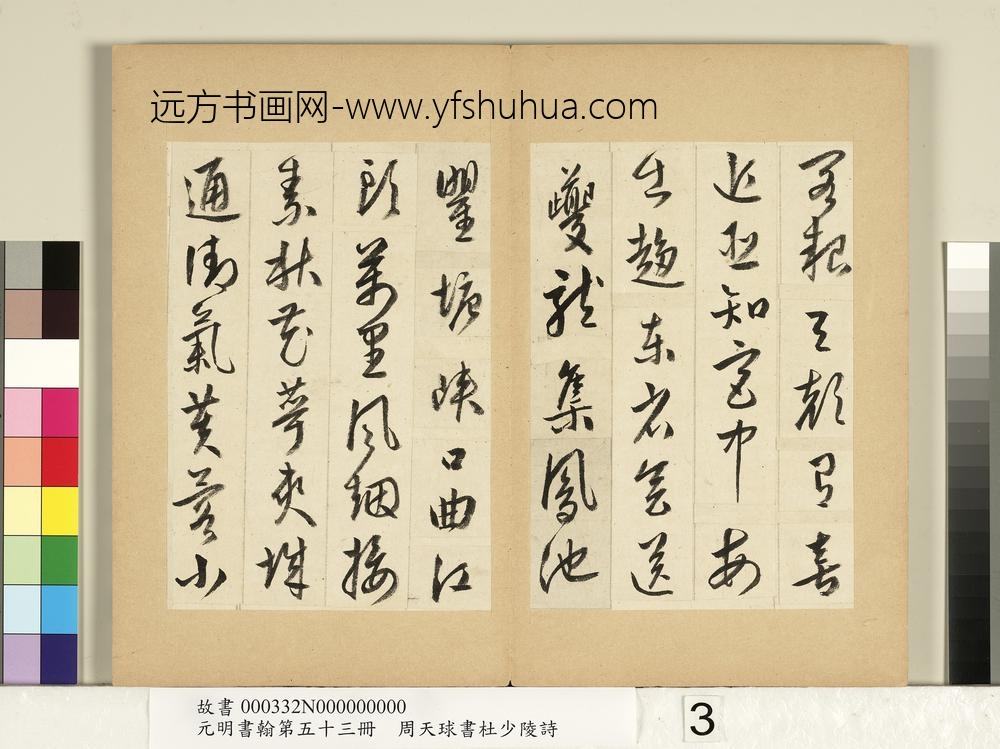 远方书画网-www.yfshuhua.com
閣報天顏有喜
近臣知宮中每
出趨東省會送
夔龍集鳳池
瞿塘峽口曲江
頭萬里風烟接
素秋花萼夾城
通御氣芙蓉小
故書 000332N000000000
元明書翰第五十三冊 周天球書杜少陵詩
3